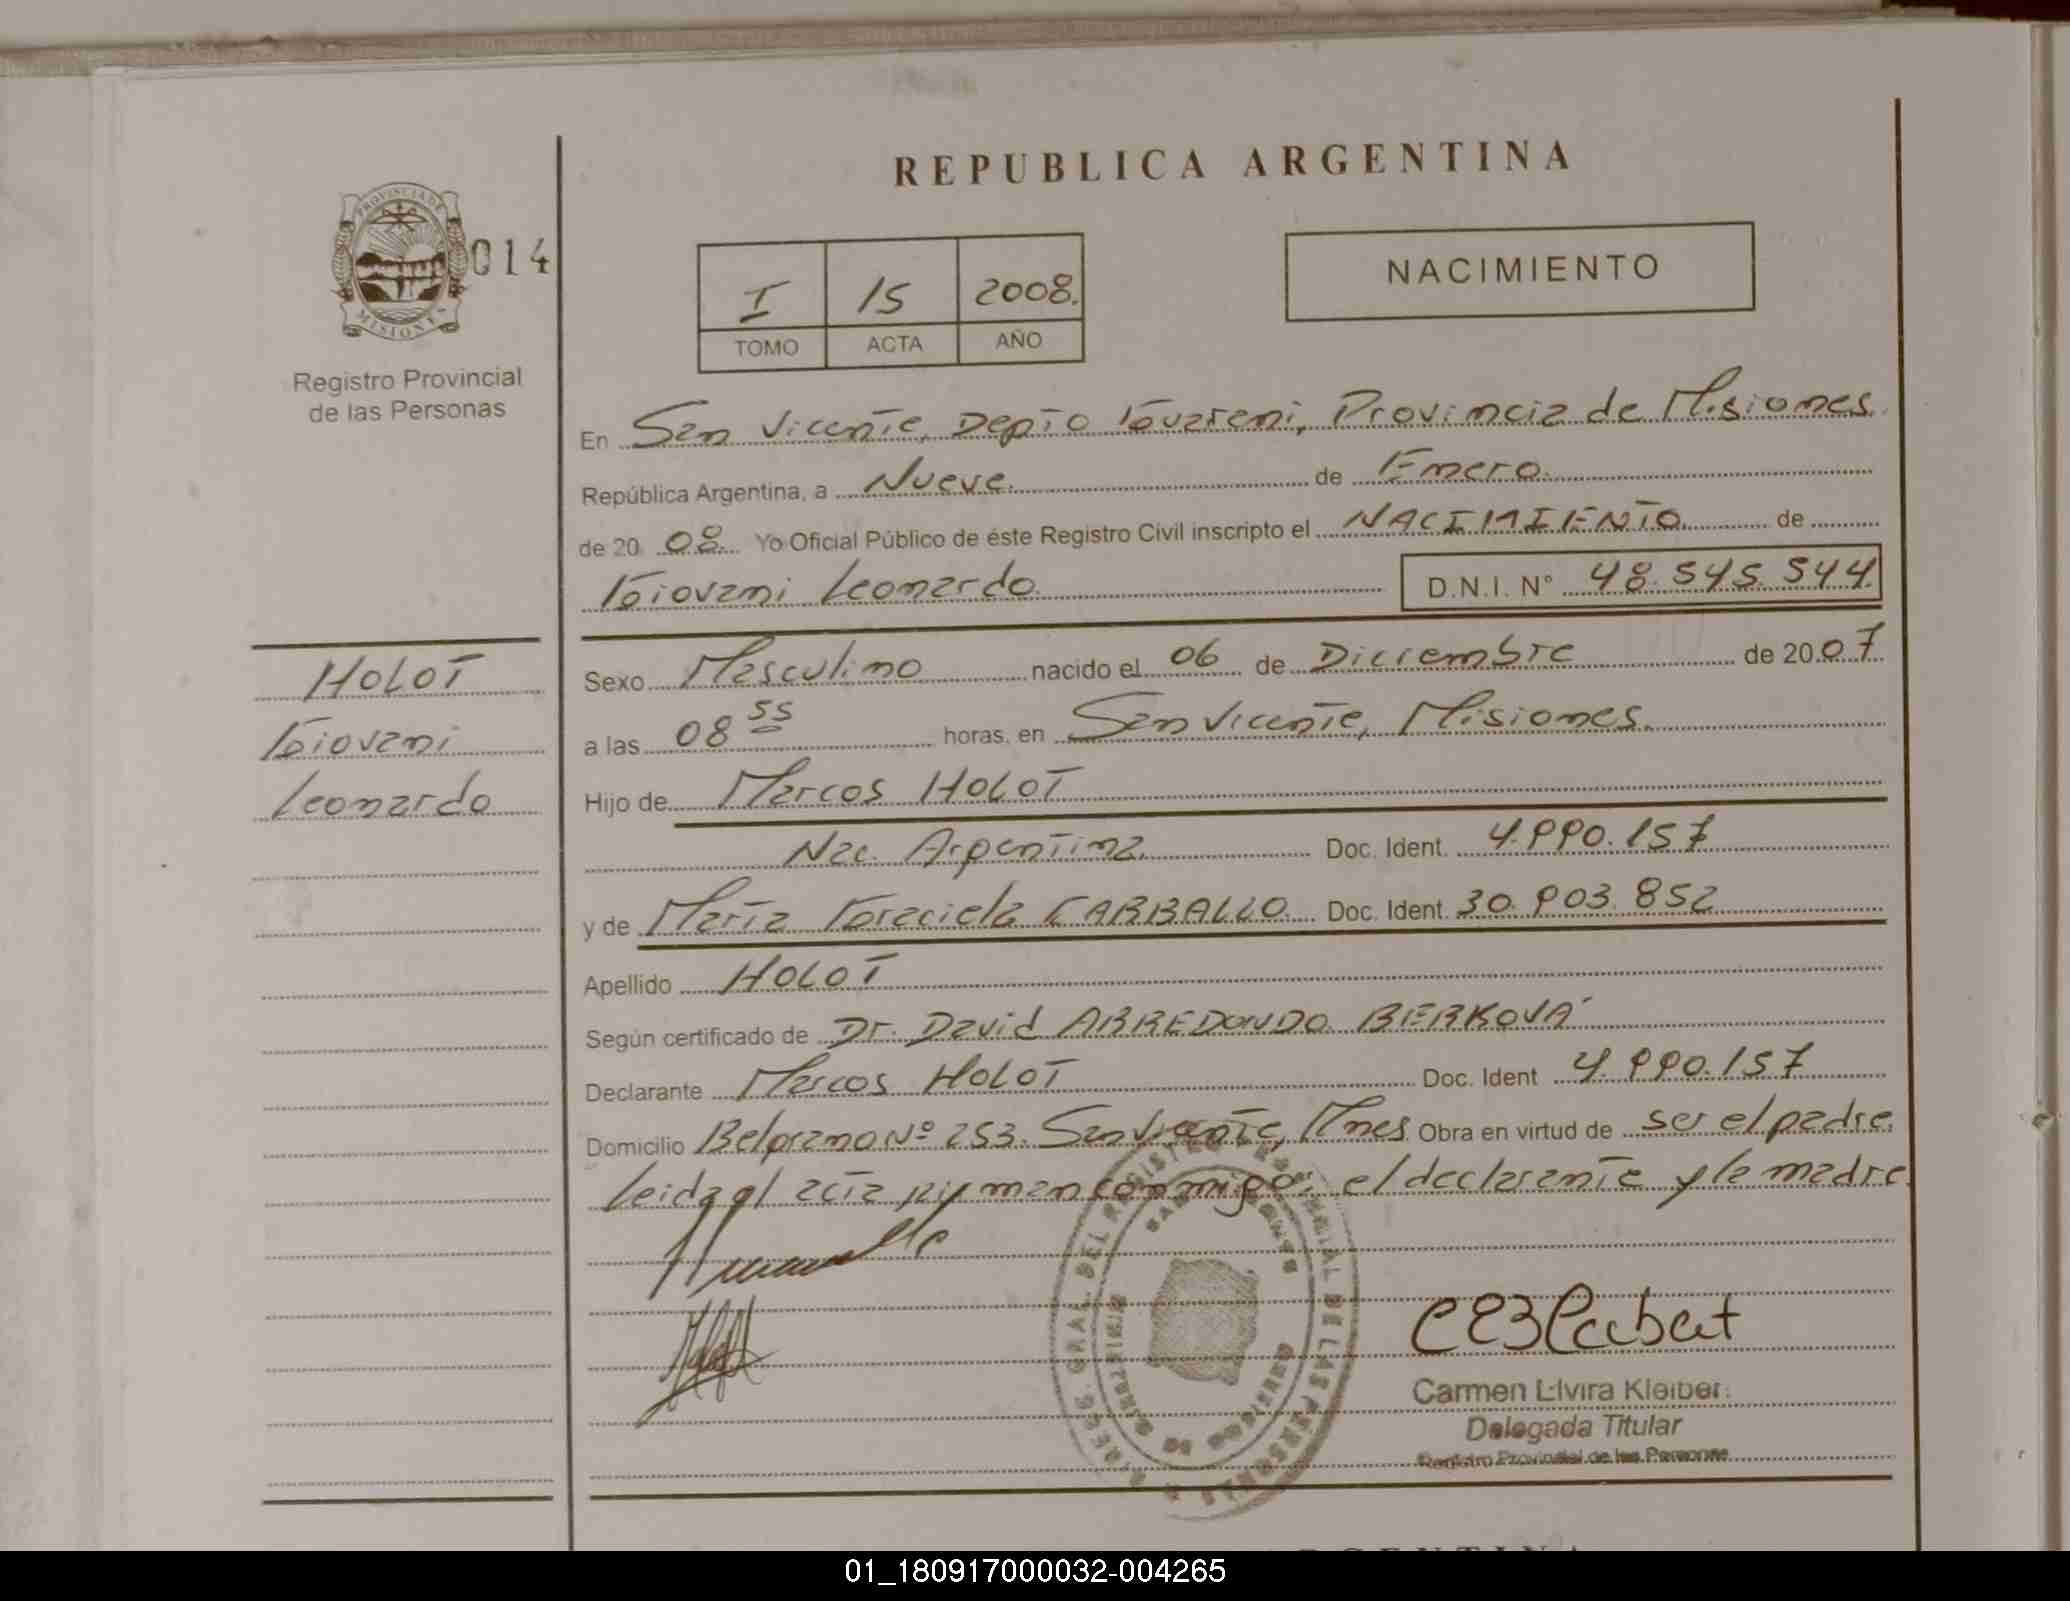 REPUBLICA ARGENTINA
PROVINCIA DE
MISIONES
014
Registro Provincial
de las Personas
I 15 2008.
TOMO ACTA AÑO
NACIMIENTO
En San Vicente, Depto Guaraní, Provincia de Misiones.
República Argentina, a Nueve. de Enero.
de 20 08. Yo Oficial Público de éste Registro Civil inscripto el NACIMIENTO de
Giovani Leonardo. D.N.I. N° 48.545.544.
HOLOT
Giovani
Leonardo
Sexo Masculino nacido el 06 de Diciembre de 2007
a las 08 55 horas, en San Vicente, Misiones.
Hijo de Marcos HOLOT
Nac. Argentina. Doc. Ident. 4.990.157
y de María Graciela CARBALLO. Doc. Ident. 30.903.852
Apellido HOLOT
Según certificado de Dr. David ARREDONDO BERKOVA´
Declarante Marcos HOLOT Doc. Ident 4.990.157
Domicilio Belgrano Nº 253. San Vicente, Mnes. Obra en virtud de ser el padre.
Leida el acta firman conmigo: el declarante y la madre.
REG. GRAL. DEL REGISTRO PROVINCIAL DE LAS PERSONAS
Carmen Elvira Kleiber
Delegada Titular
Registro Provincial de las Personas
ARGENTINA
01_180917000032-004265